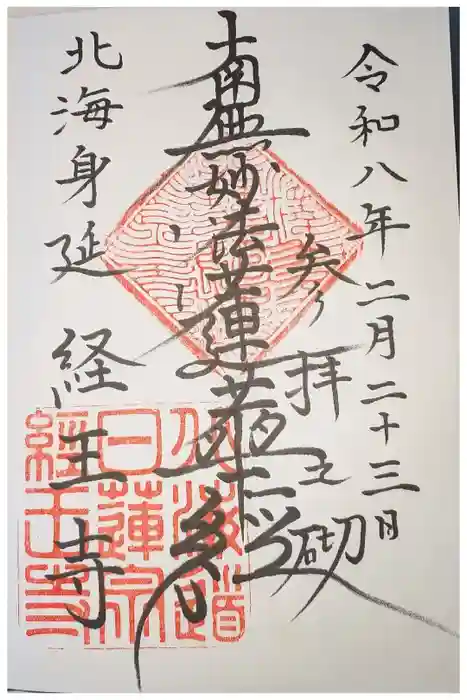 令和八年二月二十三日
参う拝之砌
南無妙法蓮華経
北海身延 経王寺
北海道
日蓮宗
経王寺